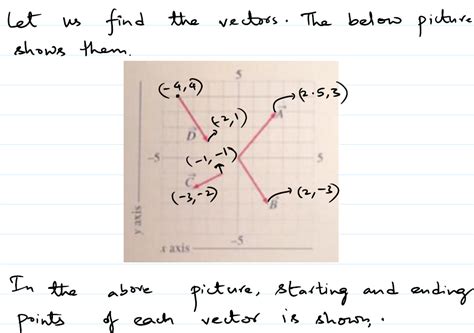 Let us find the vectors. The below picture
shows them.
5
(-4,4)
(2.5,3)
A
(-2,1)
D
(-1,-1)
-5
5
C
(-3,-2)
(2,-3)
B
y axis
-5
x axis
In the above picture, starting and ending
points of each vector is shown.